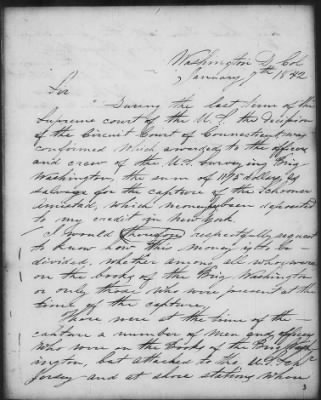 Washington D. Col
January 7th 1842
Sir
During the last term of the
Supreme court of the U.S. the decision
of the Circuit Court of Connecticut, was
confirmed which awarded to the officers
and crew of the U.S. Surveying Brig
Washington, the sum of dollars, as
salvage for the capture of the Schooner
Amistad, which money has been deposited
to my credit in New York.
I would therefore respectfully request
to know how this money is to be
divided, whether among all who were
on the books of the Brig Washington
or only those who were present at the
time of the capture,
There were at the time of the
capture a number of men and officers
who were on the books of the Brig Wash-
ington, but attached to the U.S.
Jersey and at shore stations, whom
3